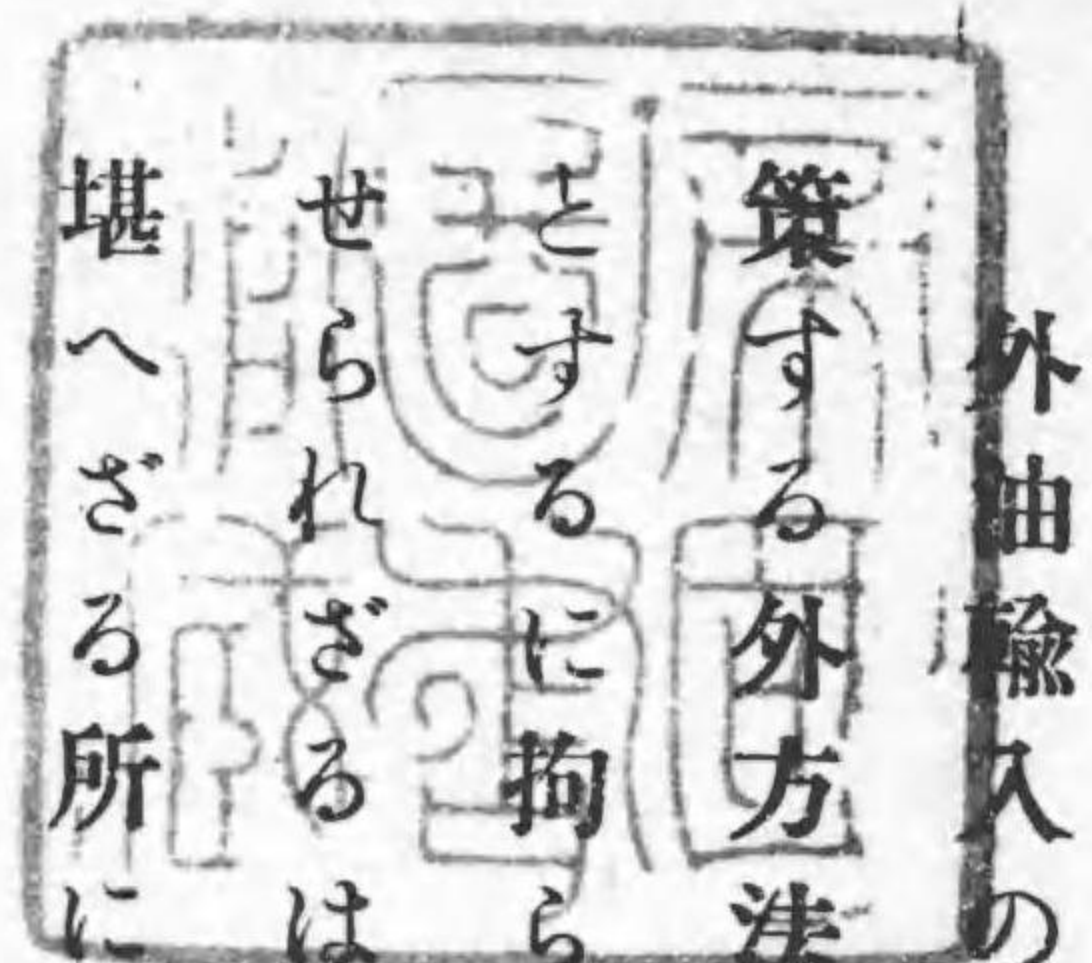 外油輸入の
策する外方法
とするに拘ら
せられざるは
堪へざる所に